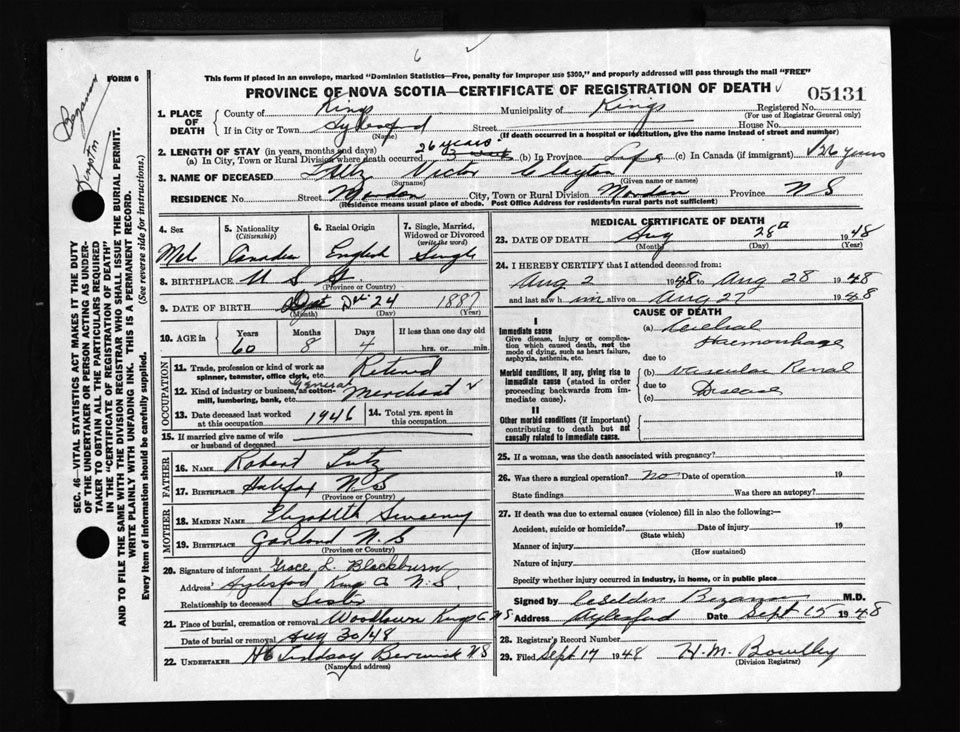 Bezanson
Kingston
FORM 6
SEC. 46—VITAL STATISTICS ACT MAKES IT THE DUTY
OF THE UNDERTAKER OR PERSON ACTING AS UNDER-
TAKER TO OBTAIN ALL THE PARTICULARS REQUIRED
IN THE "CERTIFICATE OF REGISTRATION OF DEATH"
AND TO FILE THE SAME WITH THE DIVISION REGISTRAR WHO SHALL ISSUE THE BURIAL PERMIT.
WRITE PLAINLY WITH UNFADING INK. THIS IS A PERMANENT RECORD.
Every item of information should be carefully supplied. (See reverse side for instructions.)
This form if placed in an envelope, marked "Dominion Statistics—Free, penalty for improper use $300," and properly addressed will pass through the mail "FREE"
PROVINCE OF NOVA SCOTIA—CERTIFICATE OF REGISTRATION OF DEATH 05131
1. PLACE OF DEATH County of Kings Municipality of Kings Registered No. (For use of Registrar General only)
If in City or Town Aylesford (Name) Street House No.
(If death occurred in a hospital or institution, give the name instead of street and number)
2. LENGTH OF STAY (in years, months and days)
(a) In City, Town or Rural Division where death occurred 26 years (b) In Province Life (c) In Canada (if immigrant) 26 years
3. NAME OF DECEASED Lutz Victor Clayton
(Surname) (Given name or names)
RESIDENCE No. Street Mordan City, Town or Rural Division Mordan Province N S
(Residence means usual place of abode. Post Office Address for residents in rural parts not sufficient)
4. Sex 5. Nationality (Citizenship) 6. Racial Origin 7. Single, Married, Widowed or Divorced (write the word)
Male Canadian English Single
8. BIRTHPLACE U S A
(Province or Country)
9. DATE OF BIRTH Dec 24 1887
(Month) (Day) (Year)
10. AGE in Years Months Days If less than one day old
60 8 4 hrs. or min.
OCCUPATION
11. Trade, profession or kind of work as spinner, teamster, office clerk, etc. Retired
12. Kind of industry or business, as cotton-mill, lumbering, bank, etc. General Merchant
13. Date deceased last worked at this occupation 1946 14. Total yrs. spent in this occupation
15. If married give name of wife or husband of deceased
FATHER
16. NAME Robert Lutz
17. BIRTHPLACE Halifax N.S
(Province or Country)
MOTHER
18. MAIDEN NAME Elizabeth Sweeney
19. BIRTHPLACE Garland N.S
(Province or Country)
20. Signature of informant Grace L. Blackburn
Address Aylesford Kings Co N.S.
Relationship to deceased Sister
21. Place of burial, cremation or removal Woodlawn Kings Co N S
Date of burial or removal Aug 30/48
22. UNDERTAKER Lindsay Berwick N S
(Name and address)
MEDICAL CERTIFICATE OF DEATH
23. DATE OF DEATH Aug 28th 1948
(Month) (Day) (Year)
24. I HEREBY CERTIFY that I attended deceased from:
Aug 2 1948 to Aug 28 1948
and last saw him alive on Aug 27 1948
CAUSE OF DEATH
I
Immediate cause
Give disease, injury or complication which caused death, not the mode of dying, such as heart failure, asphyxia, asthenia, etc.
(a) Cerebral Haemorrhage
due to
Morbid conditions, if any, giving rise to immediate cause (stated in order proceeding backwards from immediate cause).
(b) Vascular Renal
due to Disease
(c)
II
Other morbid conditions (if important) contributing to death but not causally related to immediate cause.
25. If a woman, was the death associated with pregnancy?
26. Was there a surgical operation? No Date of operation 19
State findings Was there an autopsy?
27. If death was due to external causes (violence) fill in also the following:—
Accident, suicide or homicide? Date of injury 19
(State which)
Manner of injury
(How sustained)
Nature of injury
Specify whether injury occurred in industry, in home, or in public place
Signed by Bezanson M.D.
Address Aylesford Date Sept 15 1948
28. Registrar's Record Number
29. Filed Sept 17 1948 H. M. Bowlby
(Division Registrar)